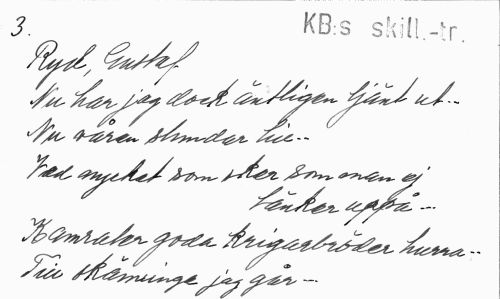 3.
KB:s skill.-tr.
Ryd, Gustaf.
Nu har jag dock äntligen tjänt ut--
Nu våren stundar hit--
Vad mycket som sker som man ej
tänker uppå--
Kamrater goda krigarbröder hurra--
Till skämninge jag går--